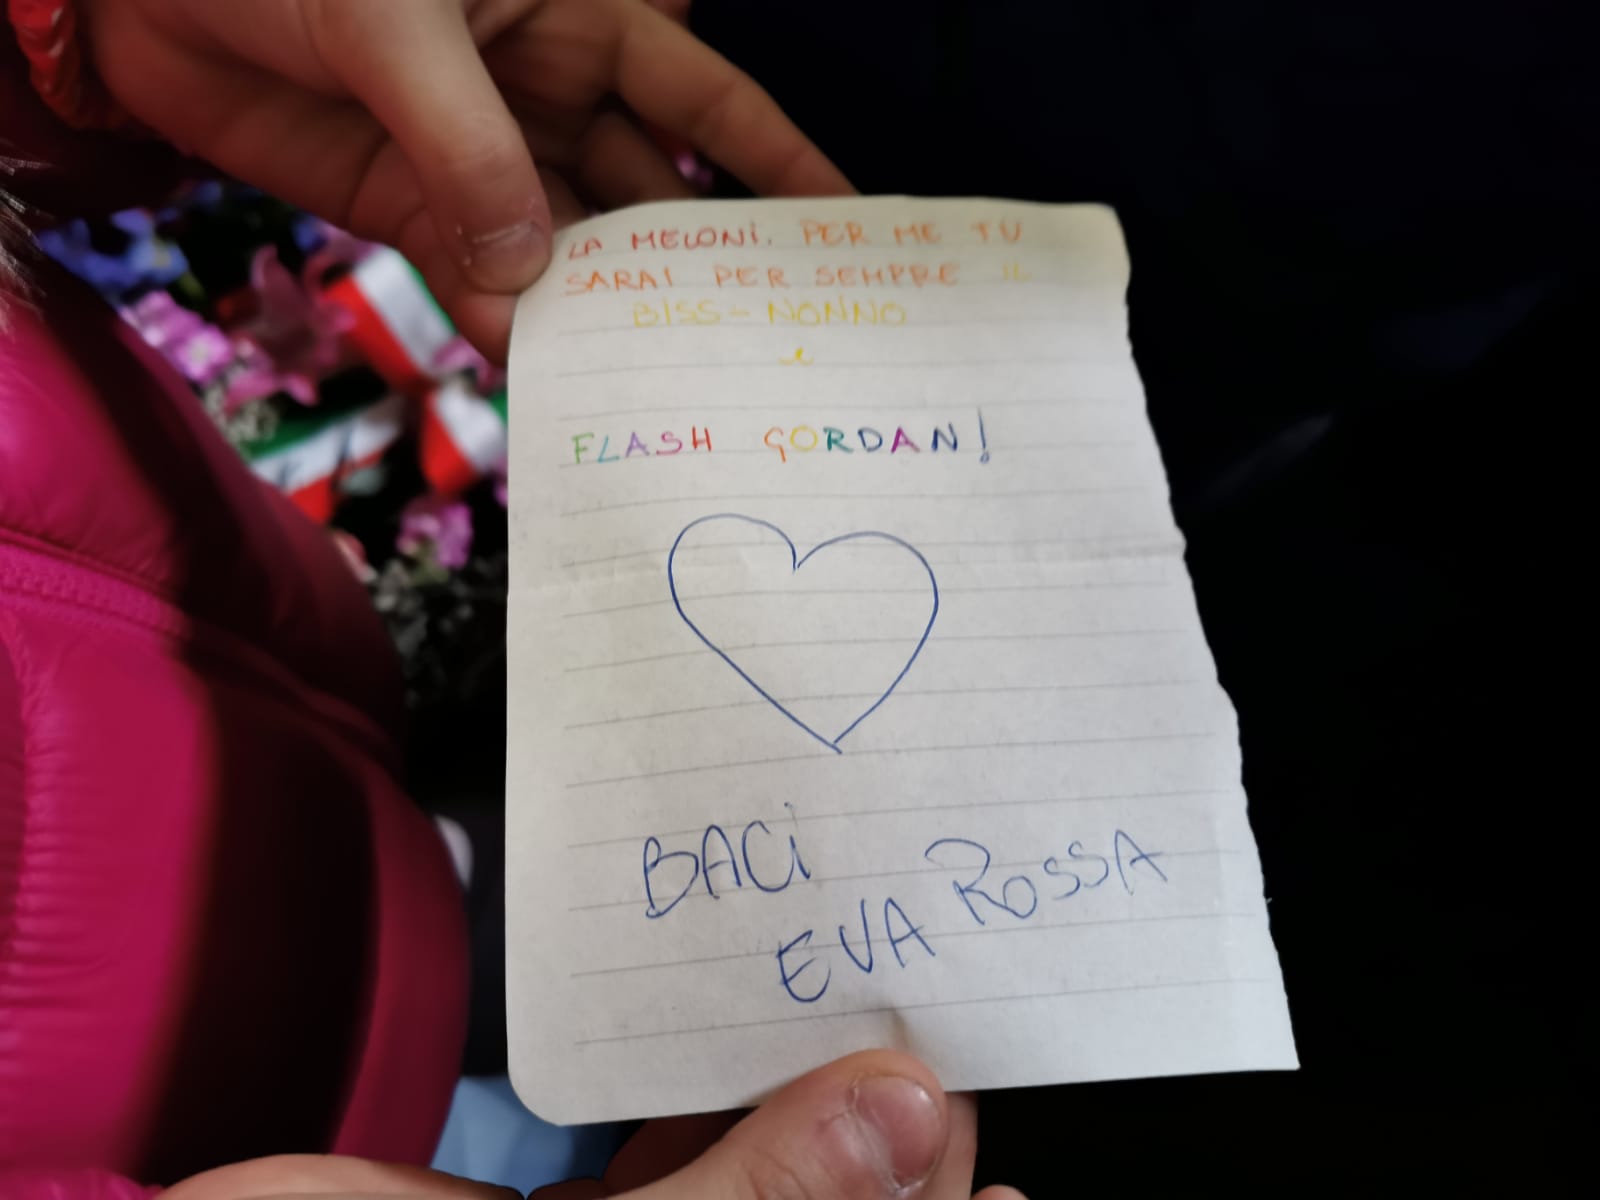 LA MELONi. PER ME TU
SARAI PER SEMPRE IL
BISS-NONNO
e
FLASH GORDAN!
BACi
EVA ROSSA